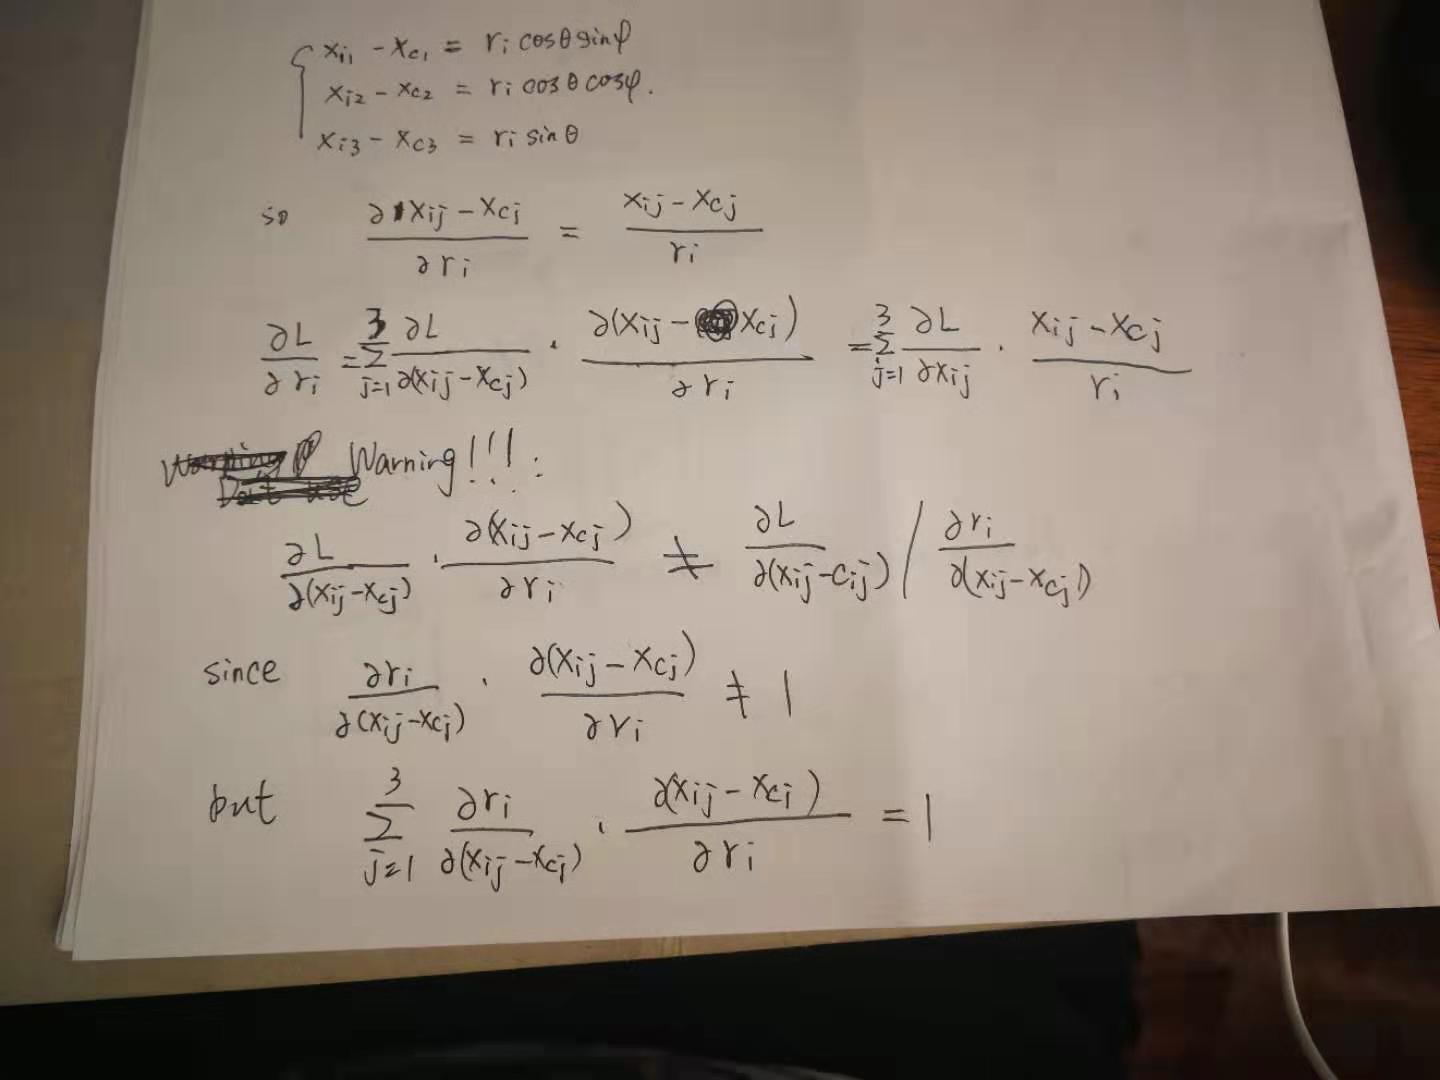 x_{i1} - x_{c1} = r_i cosθ sinφ
x_{i2} - x_{c2} = r_i cosθ cosφ.
x_{i3} - x_{c3} = r_i sinθ
so ∂(x_{ij} - x_{cj}) / ∂r_i = (x_{ij} - x_{cj}) / r_i
∂L/∂r_i = Σ_{j=1}^{3} ∂L/∂(x_{ij} - x_{cj}) · ∂(x_{ij} - x_{cj})/∂r_i = Σ_{j=1}^{3} ∂L/∂x_{ij} · (x_{ij} - x_{cj})/r_i
Warning!!!:
∂L/∂(x_{ij} - x_{cj}) · ∂(x_{ij} - x_{cj})/∂r_i ≠ ∂L/∂(x_{ij} - c_{ij}) / ∂r_i/∂(x_{ij} - x_{cj})
since ∂r_i/∂(x_{ij} - x_{cj}) · ∂(x_{ij} - x_{cj})/∂r_i ≠ 1
but Σ_{j=1}^{3} ∂r_i/∂(x_{ij} - x_{cj}) · ∂(x_{ij} - x_{cj})/∂r_i = 1